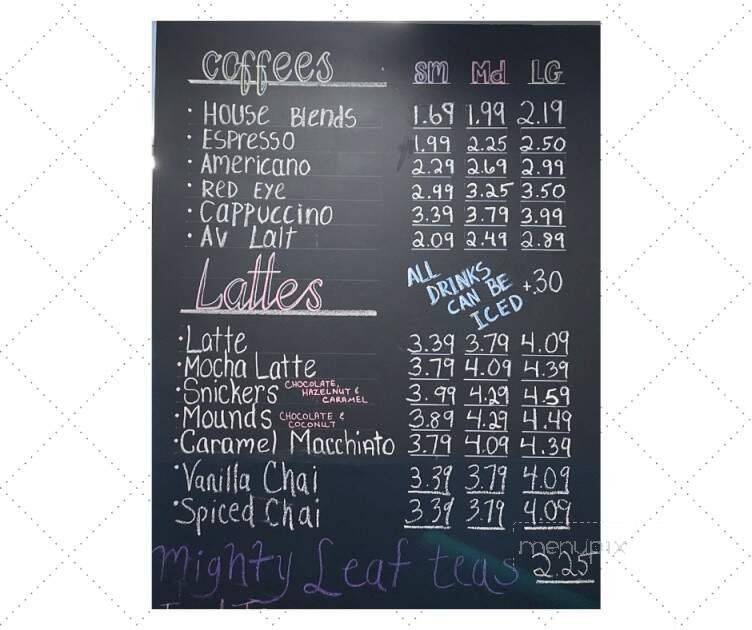 coffees SM Md LG
• HOUSE Blends 1.69 1.99 2.19
• ESPRESSO 1.99 2.25 2.50
• Americano 2.29 2.69 2.99
• RED EYE 2.99 3.25 3.50
• CAPPUCCINO 3.39 3.79 3.99
• AV Lait 2.09 2.49 2.89
Lattes
ALL DRINKS CAN BE ICED +.30
• Latte 3.39 3.79 4.09
• Mocha Latte 3.79 4.09 4.39
• Snickers CHOCOLATE, HAZELNUT & CARAMEL 3.99 4.29 4.59
• Mounds CHOCOLATE & COCONUT 3.89 4.29 4.49
• Caramel Macchiato 3.79 4.09 4.39
• Vanilla Chai 3.39 3.79 4.09
• Spiced Chai 3.39 3.79 4.09
menupix
Mighty Leaf teas 2.25+